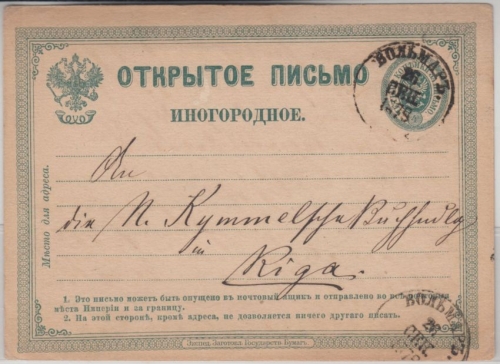 ОТКРЫТОЕ ПИСЬМО
ИНОГОРОДНОЕ.
ВОЛЬМАРЪ
26
СЕН.
1875
Мѣсто для адреса.
An
die N. Kymmelsche Buchhndlg
in
Riga.
1. Это письмо можетъ быть опущено въ почтовый ящикъ и отправлено во всѣ
мѣста Имперіи и за границу.
2. На этой сторонѣ, кромѣ адреса, не дозволяется ничего другаго писать.
ВОЛЬМАРЪ
26
СЕН.
Заготовл. Государств. Бумагъ.